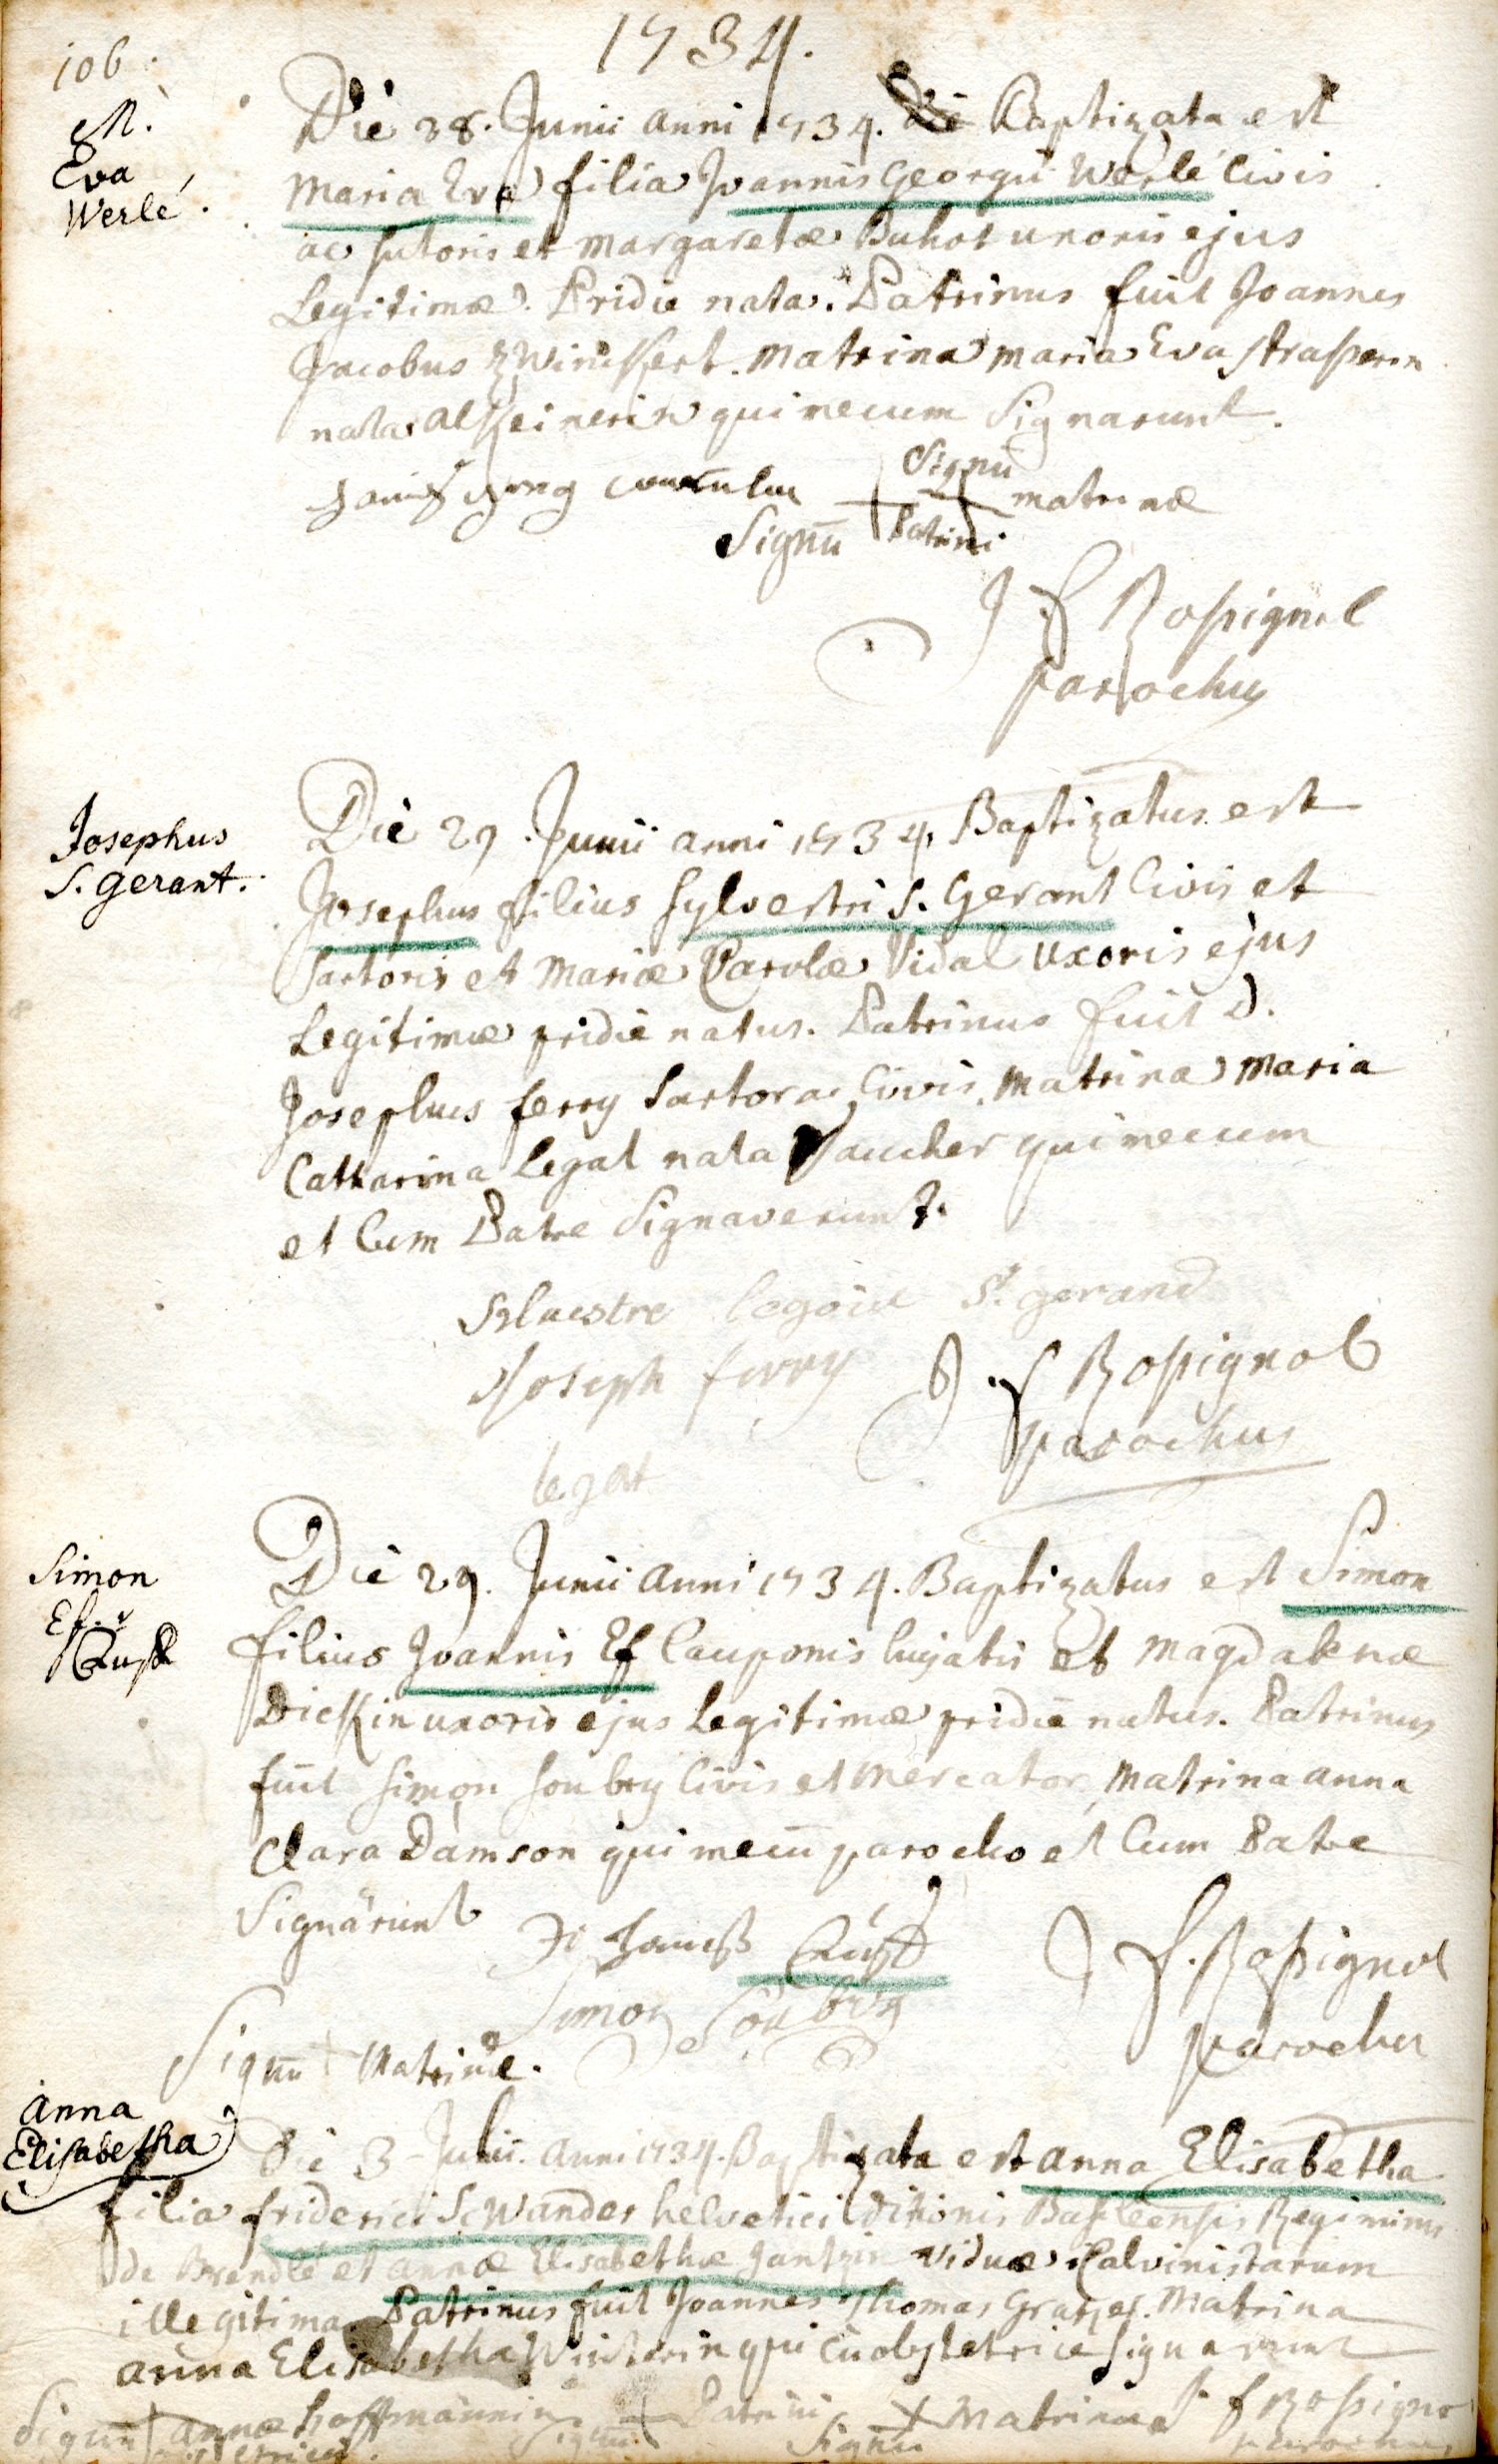 1734.
106.
M.
Eva
Werlé.
Die 28. Junii anni 1734. Baptizata est
Maria Eva filia Joannis Georgii Werlé Civis
ac sutoris et Margaretæ Buhot uxoris ejus
Legitimæ. Pridie nata. Patrinus fuit Joannes
Jacobus Matrina Maria Eva
nata qui mecum Signarunt.
Signū
matrinæ
Signū Patrini
J f Rossignol
parochus
Josephus
S. gerant.
Die 29. Junii anni 1734. Baptizatus est
Josephus filius Sylvestri S. Gerant Civis et
Sartoris et Mariæ Carolæ Vidal uxoris ejus
Legitimæ pridie natus. Patrinus fuit D.
Josephus ferry Sartor ac Civis. Matrina Maria
Catharina Legat nata qui mecum
et Cum Patre Signaverunt.
Siluestre St. gerand
Joseph ferry
J. f Rossignol
parochus
legat
Simon
Ef. v
Die 29. Junii anni 1734. Baptizatus est Simon
filius Joannis Ef Cauponis hujatis et Magdalenæ
Dickin uxoris ejus Legitimæ pridie natus. Patrinus
fuit Simon Soubry Civis et Mercator, Matrina anna
Clara Damson qui mecū parocho et Cum Patre
Signārunt
J f. Rossignol
parochus
Simon Soubry
Signū Matrinæ.
Anna
Elisabetha
Die 3 Julii. Anni 1734. Baptizata est anna Elisabetha
filia friderici Schwander helvetici ditionis Basileensis Regiminis
de Brendlé et annæ Elisabethæ viduæ Calvinistarum
illegitima. Patrinus fuit Joannes Thomas Matrina
anna Elisabetha Winterin qui cū obstetrice signarunt
Signū annæ hoffmännin
Signū Patrini
Signū Matrinæ
J f Rossignol
parochus